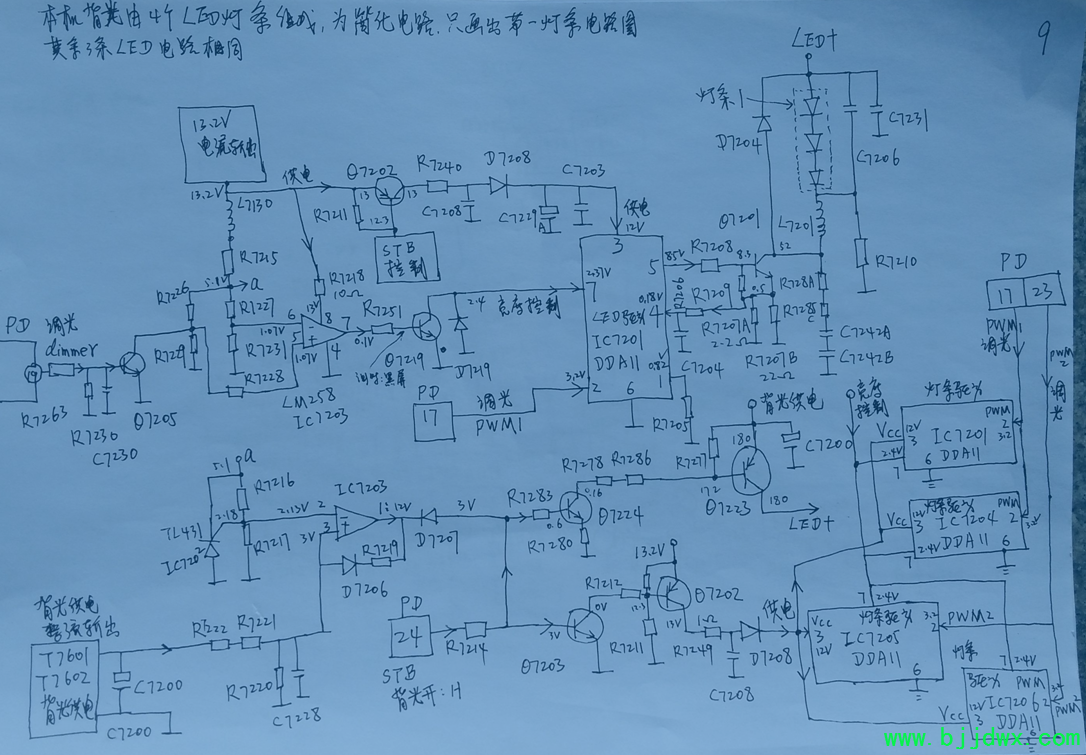 本机背光由4个LED灯条组成,为简化电路,只画出第一灯条电路图
其余3条LED电路相同
9
LED+
灯条1
D7204
C7231
C7206
13.2V
电流输出
13.2V
供电
L7130
Q7202
R7240
D7208
C7203
13
13
12.3
R7211
C7208
C7229
供电
12V
STB
控制
Q7201
L7201
R7210
R7215
5.1V
a
R7218
10Ω
R7226
R7227
13V
R7251
2.4
亮度控制
3
5
85V
R7208
8.3
52
2.37V
7
LED驱动
IC7201
DDA11
0.18V
4
R7206
R7209
0.5
R728A
R7285
C
R7207A
2.2Ω
R7207B
22Ω
C7242A
C7242B
PD
17
23
PWM1
调光
PWM2
调光
PD
调光
dimmer
19
R7229
1.07V
6
8
7
0.1V
R7231
1.07V
4
R7228
Q7219
D7219
LM258
IC7203
R7263
R7230
C7230
Q7205
PD
17
调光
PWM1
3.2V
2
6
0.82
1
C7204
R7205
背光供电
C7200
亮度控制
灯条驱动
Vcc
12V
3
PWM
2
3.2
IC7201
DDA11
2.4V
7
6
5.1
a
R7216
2.18
2.15V
2
IC7203
3V
3
1:12V
3V
D7207
R7217
TL431
IC7202
R7219
D7206
R7283
0.6
R7278
R7286
0.16
Q7224
R7280
R7277
172
180
180
Q7223
LED+
Vcc
12V
3
灯条驱动
PWM
2
3.2
IC7204
DDA11
2.4V
7
6
背光供电
整流输出
T7601
T7602
背光供电
C7200
C7200
R7222
R7221
R7220
C7228
PD
24
STB
背光开:H
R7214
3V
Q7203
0V
R7212
13.2V
12.3
Q7202
13V
R7211
R7249
1Ω
C7208
D7208
供电
7
2.4V
Vcc
3
12V
灯条驱动
IC7205
DDA11
3.2
2
PWM2
6
灯条
驱动
7
2.4V
PWM
3.2
2
PWM2
Vcc
12V
3
IC7206
DDA11
6
www.bjjdwx.com